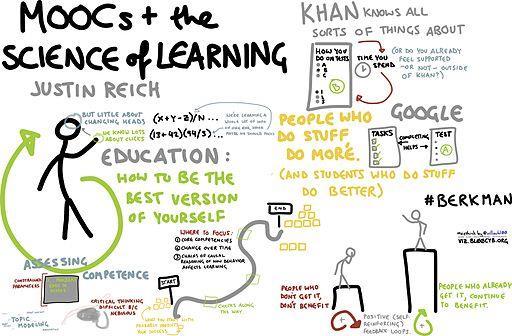 MOOCs + the
SCIENCE of LEARNING
JUSTIN REICH
BUT LITTLE ABOUT
CHANGING HEADS
WE KNOW LOTS
ABOUT CLICKS
(X+Y-Z)/N...
EDUCATION:
HOW TO BE THE
BEST VERSION
OF YOURSELF
KHAN KNOWS ALL
SORTS OF THINGS ABOUT
HOW YOU
DO ON TESTS
A
B
C
B
TIME YOU
SPEND
(OR DO YOU ALREADY
FEEL SUPPORTED
-OR NOT- OUTSIDE
OF KHAN?)
GOOGLE
TASKS
COMPLETING
HELPS
TEST
A
PEOPLE WHO
DO STUFF
DO MORE.
(AND STUDENTS WHO DO STUFF
DO BETTER)
#BERKMAN
VIZ.BLOGCY3.ORG
WHERE TO FOCUS:
① CORE COMPETENCIES
② CHANGE OVER TIME
③ CHAINS OF CAUSAL
REASONING OF HOW BEHAVIOR
AFFECTS LEARNING
END
START
CHECKS ALONG
THE WAY
ASSESSING
COMPETENCE
CONSTRAINED
PARAMETERS
TOPIC
MODELING
CRITICAL THINKING
DIFFICULT B/C
NEBULOUS
PEOPLE WHO
DON'T GET IT,
DON'T BENEFIT
POSITIVE (SELF-
REINFORCING)
FEEDBACK LOOPS
PEOPLE WHO ALREADY
GET IT, CONTINUE
TO BENEFIT.